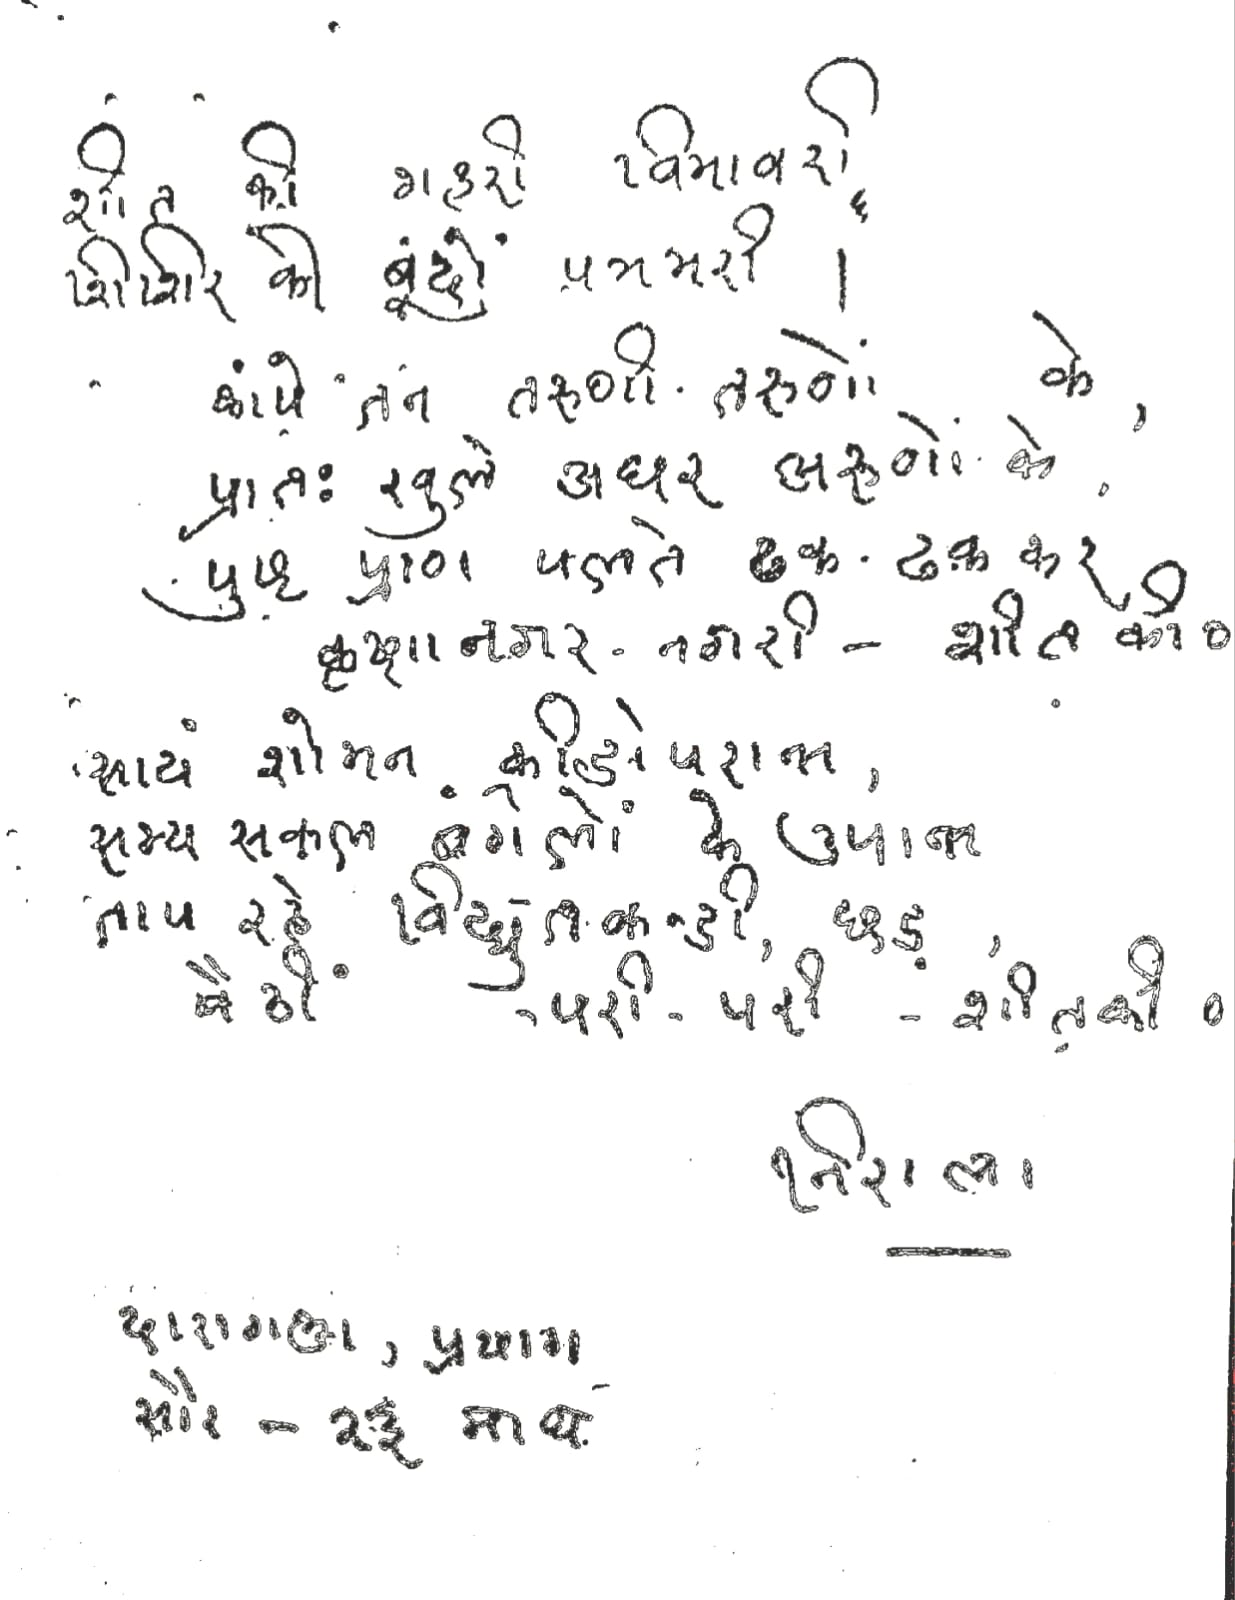 शीत की गहरी विभावरी,
शिशिर की बूंदों प्रभभरी ।
काँपे तन तरुणी-तरुणों के,
प्रातः खुले अधर अरुणों के,
पुष्ट प्राण पलते ढक-ढककर
नगर-नगरी - शीत की०
सायं शोभन क्रीड़ोपरान्त,
सभ्य सकल बंगलों के उपान्त
ताप रहे विद्युत-कन्डी, छड़,
बैठीं परी-परी - शीत की ०
निराला
दारागञ्ज, प्रयाग
सौर - २३ मार्घ